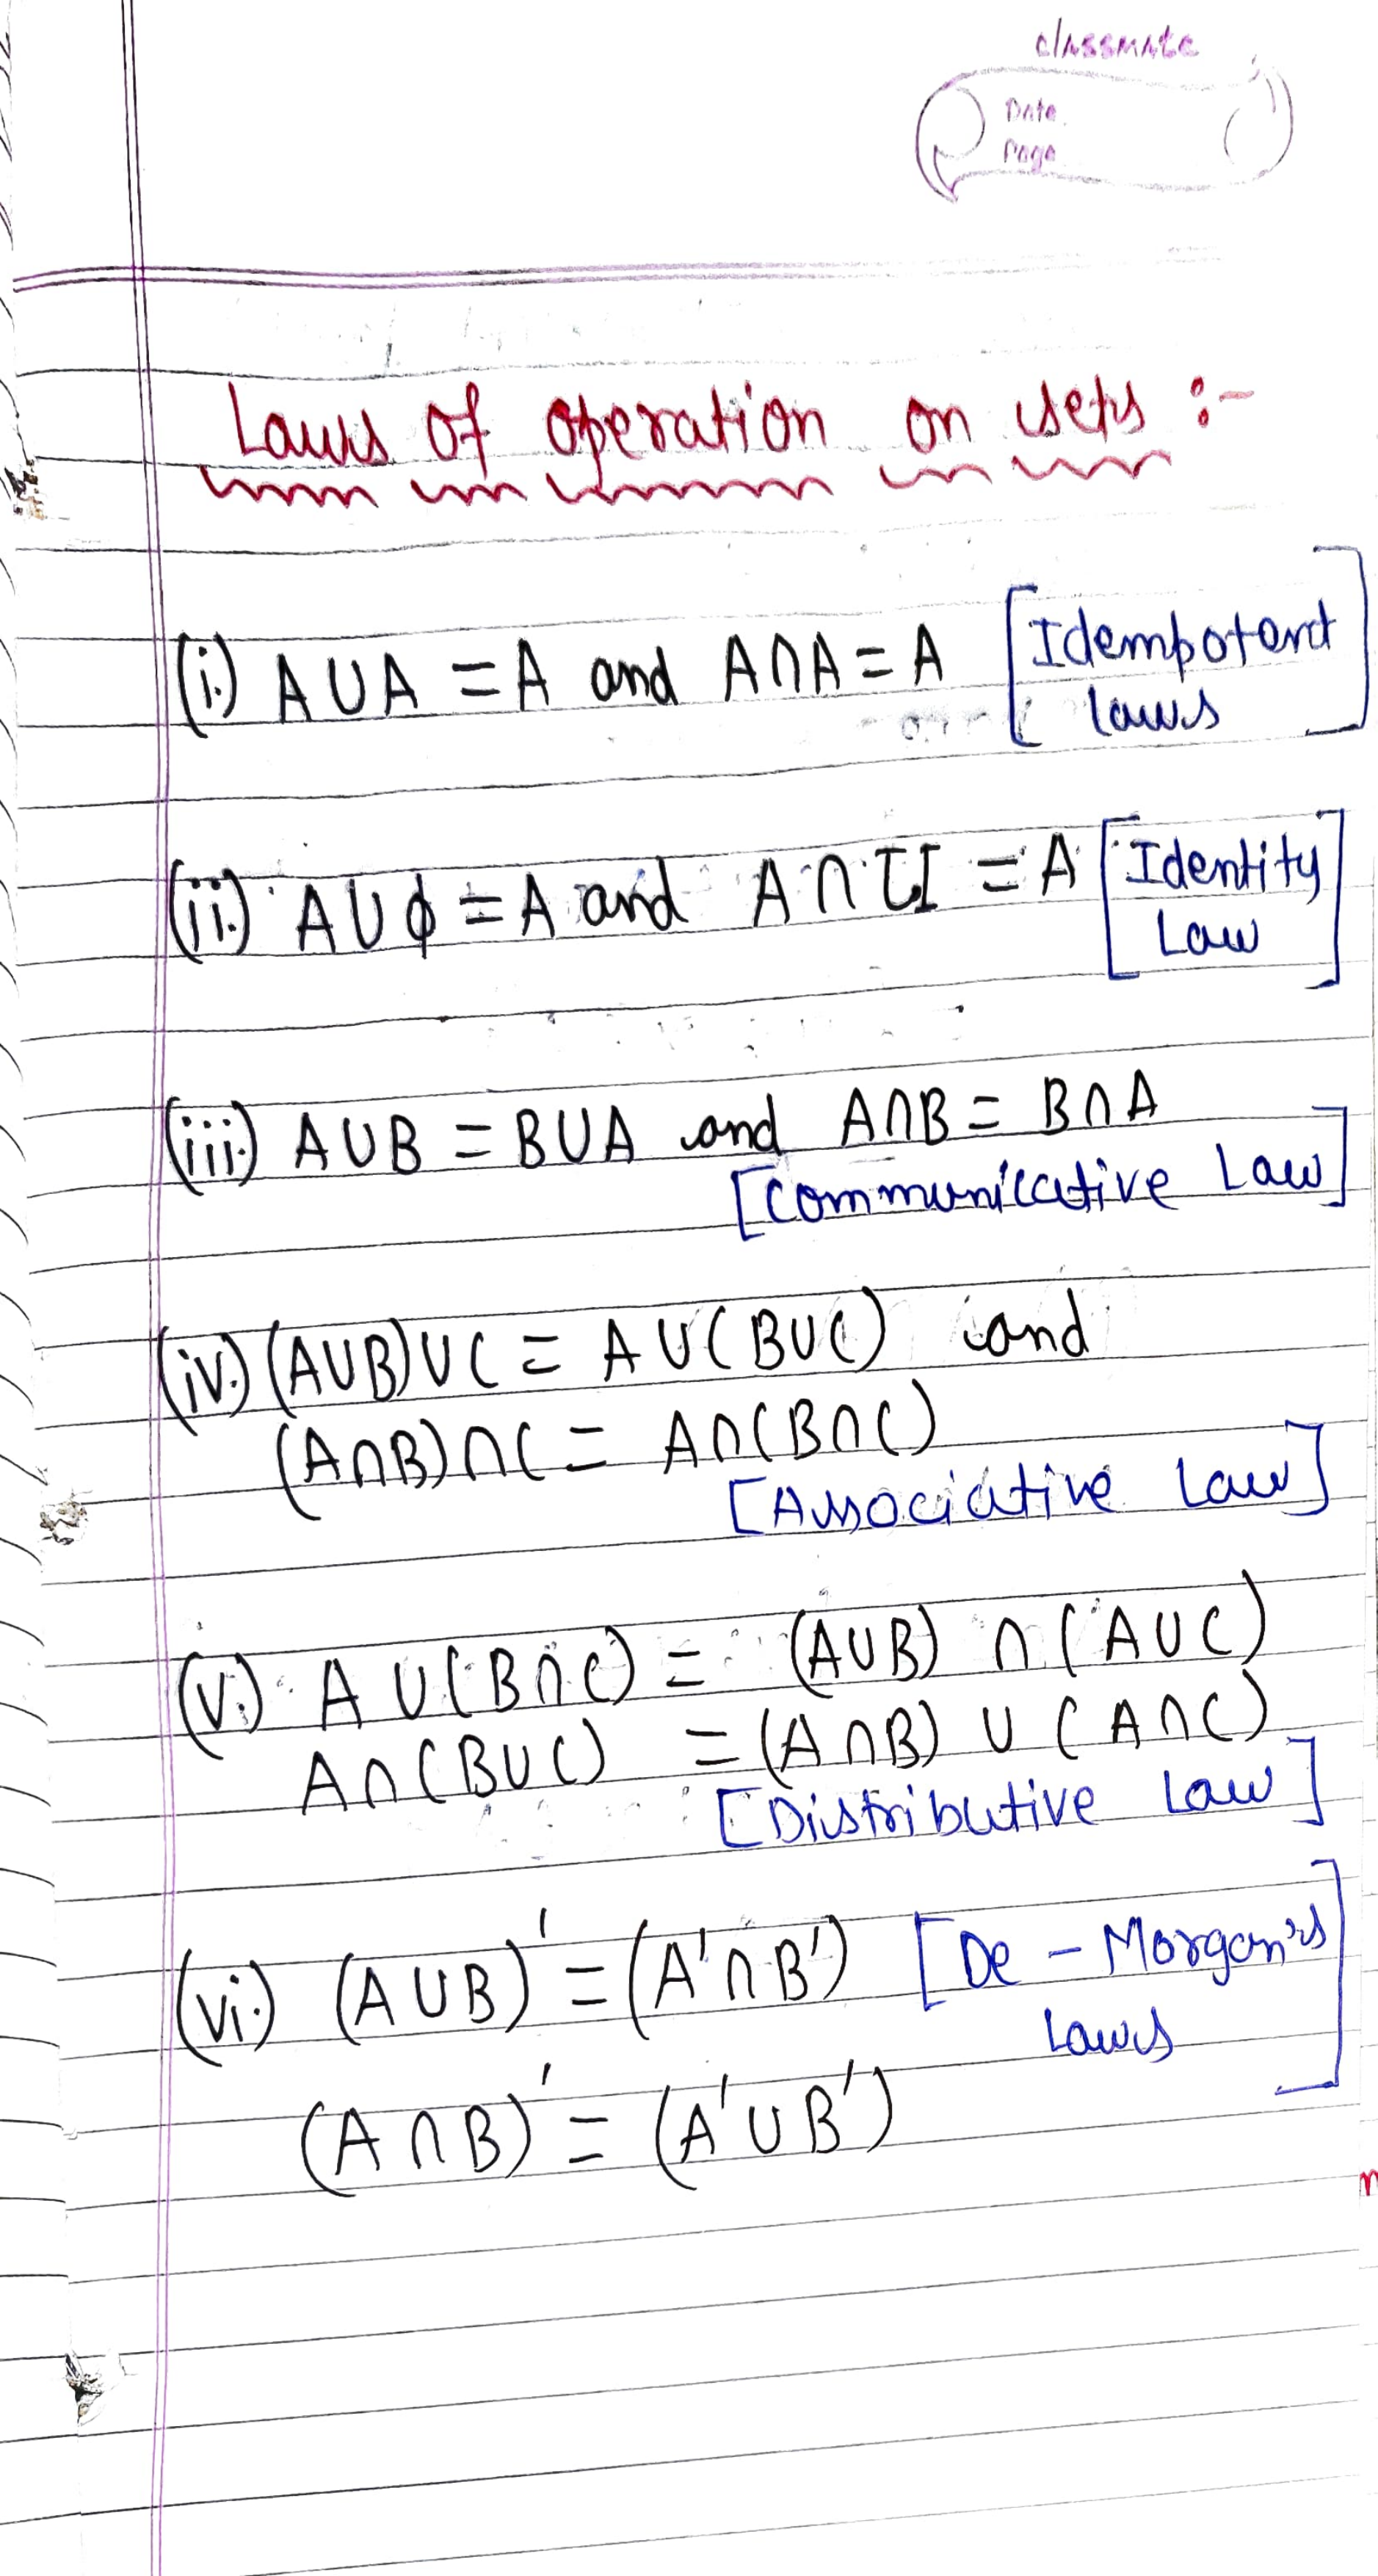 classmate
Date
Page
Laws of operation on sets :-
(i.) A∪A = A and A∩A = A [Idempotent
laws]
(ii.) A∪ϕ = A and A∩U = A [Identity
Law]
(iii.) A∪B = B∪A and A∩B = B∩A
[Communicative Law]
(iv.) (A∪B)∪C = A∪(B∪C) and
(A∩B)∩C = A∩(B∩C)
[Associative Law]
(v.) A∪(B∩C) = (A∪B) ∩ (A∪C)
A∩(B∪C) = (A∩B) ∪ (A∩C)
[Distributive Law]
(vi.) (A∪B)' = (A'∩B') [De - Morgan's
Laws]
(A∩B)' = (A'∪B')